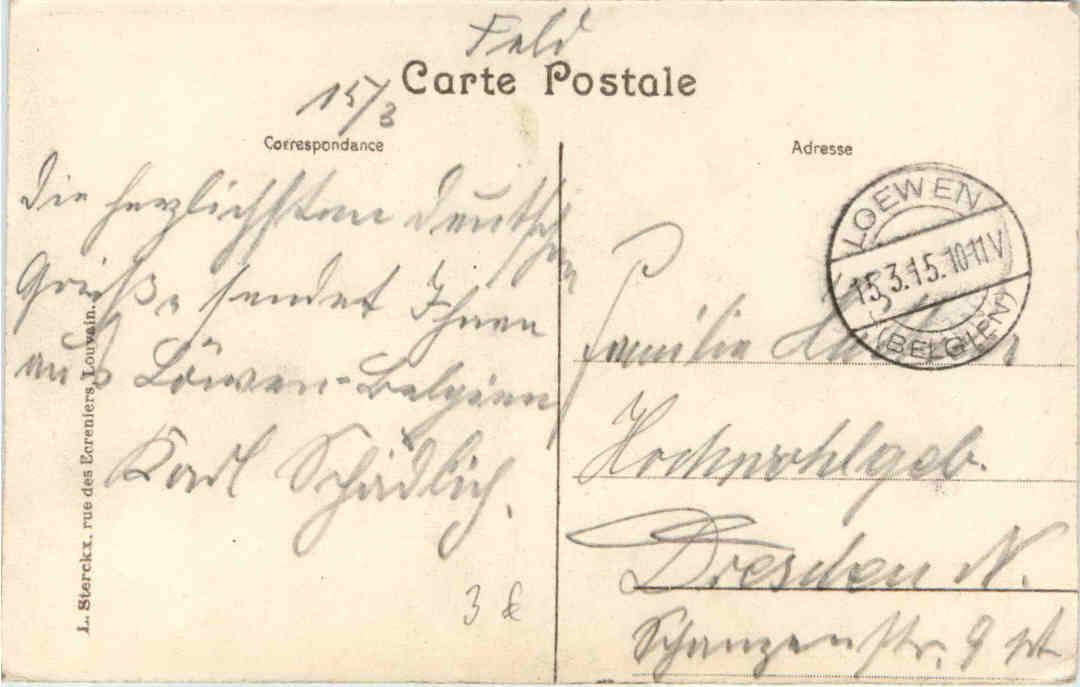 Feld
Carte Postale
15/3
Correspondance
Adresse
Die herzlichsten Deutschen
Grüße sendet Ihnen
aus Löwen-Belgien
Karl Schädlich.
L. Sterckx, rue des Ecreniers, Louvain.
LOEWEN
15.3.15.10-11V
(BELGIEN)
Familie
Hochwohlgeb.
Dresden N.
Schanzenstr. 9
3